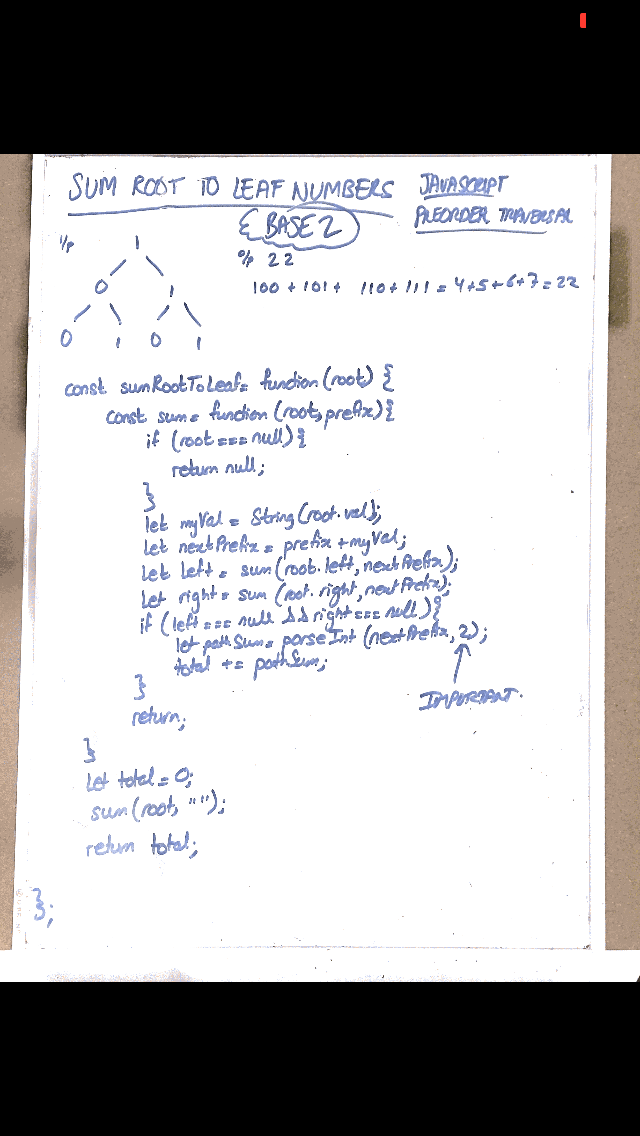 SUM ROOT TO LEAF NUMBERS
JAVASCRIPT
PREORDER TRAVERSAL
{ BASE 2
I/p
O/p 22
100 + 101 + 110 + 111 = 4+5+6+7 = 22
1
0 1
0 1 0 1
const sumRootToLeaf = function (root) {
const sum = function (root, prefix) {
if (root === null) {
return null;
}
let myVal = String(root.val);
let nextPrefix = prefix + myVal;
let left = sum(root.left, nextPrefix);
let right = sum (root.right, nextPrefix);
if (left === null && right === null) {
let pathSum = parseInt (nextPrefix, 2);
total += pathSum;
}
IMPORTANT.
return;
}
let total = 0;
sum(root, "");
return total;
};